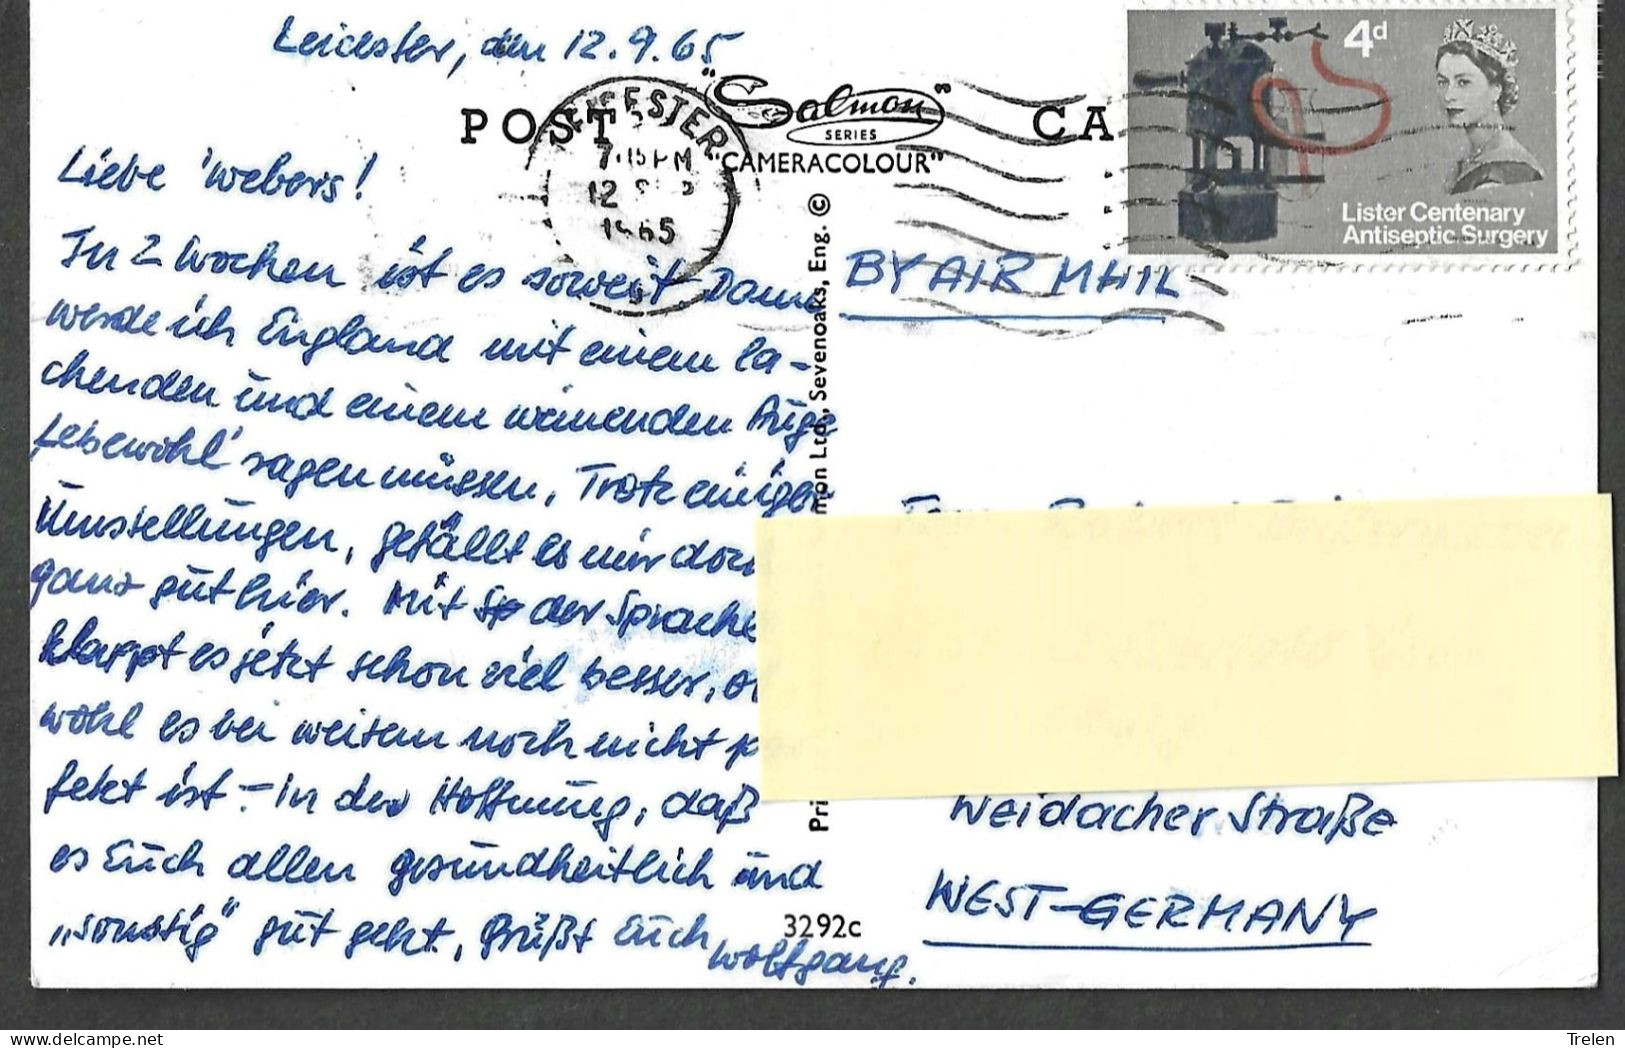 Leicester, den 12.9.65
POST CA
"Salmon"
SERIES
CAMERACOLOUR"
LEICESTER
7.15 PM
12
1965
4d
Lister Centenary
Antiseptic Surgery
Liebe 'Webers!
In 2 Wochen ist es soweit. Dann
werde ich England mit einem la-
chenden und einem weinenden Auge
'Lebewohl' sagen müssen. Trotz einiger
Umstellungen, gefällt es mir doch
ganz gut hier. Mit der Sprache
klappt es jetzt schon viel besser,
wohl es bei weitem noch nicht
fekt ist. – In der Hoffnung, daß
es Euch allen gesundheitlich und
„sonstig" gut geht, grüßt Euch
Wolfgang.
BY AIR MAIL
mon Ltd., Sevenoaks, Eng. ©
Weidacher Straße
WEST-GERMANY
3292c
Trelen